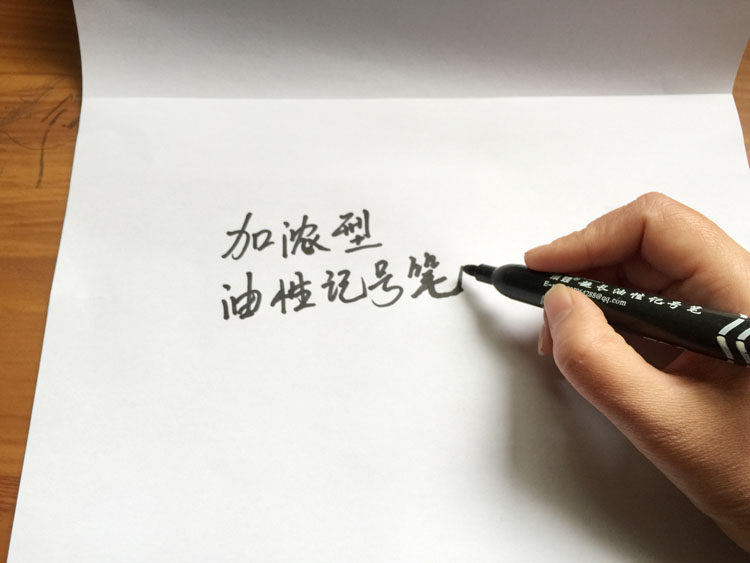 加浓型
油性记号笔
超长油性记号笔
@qq.com